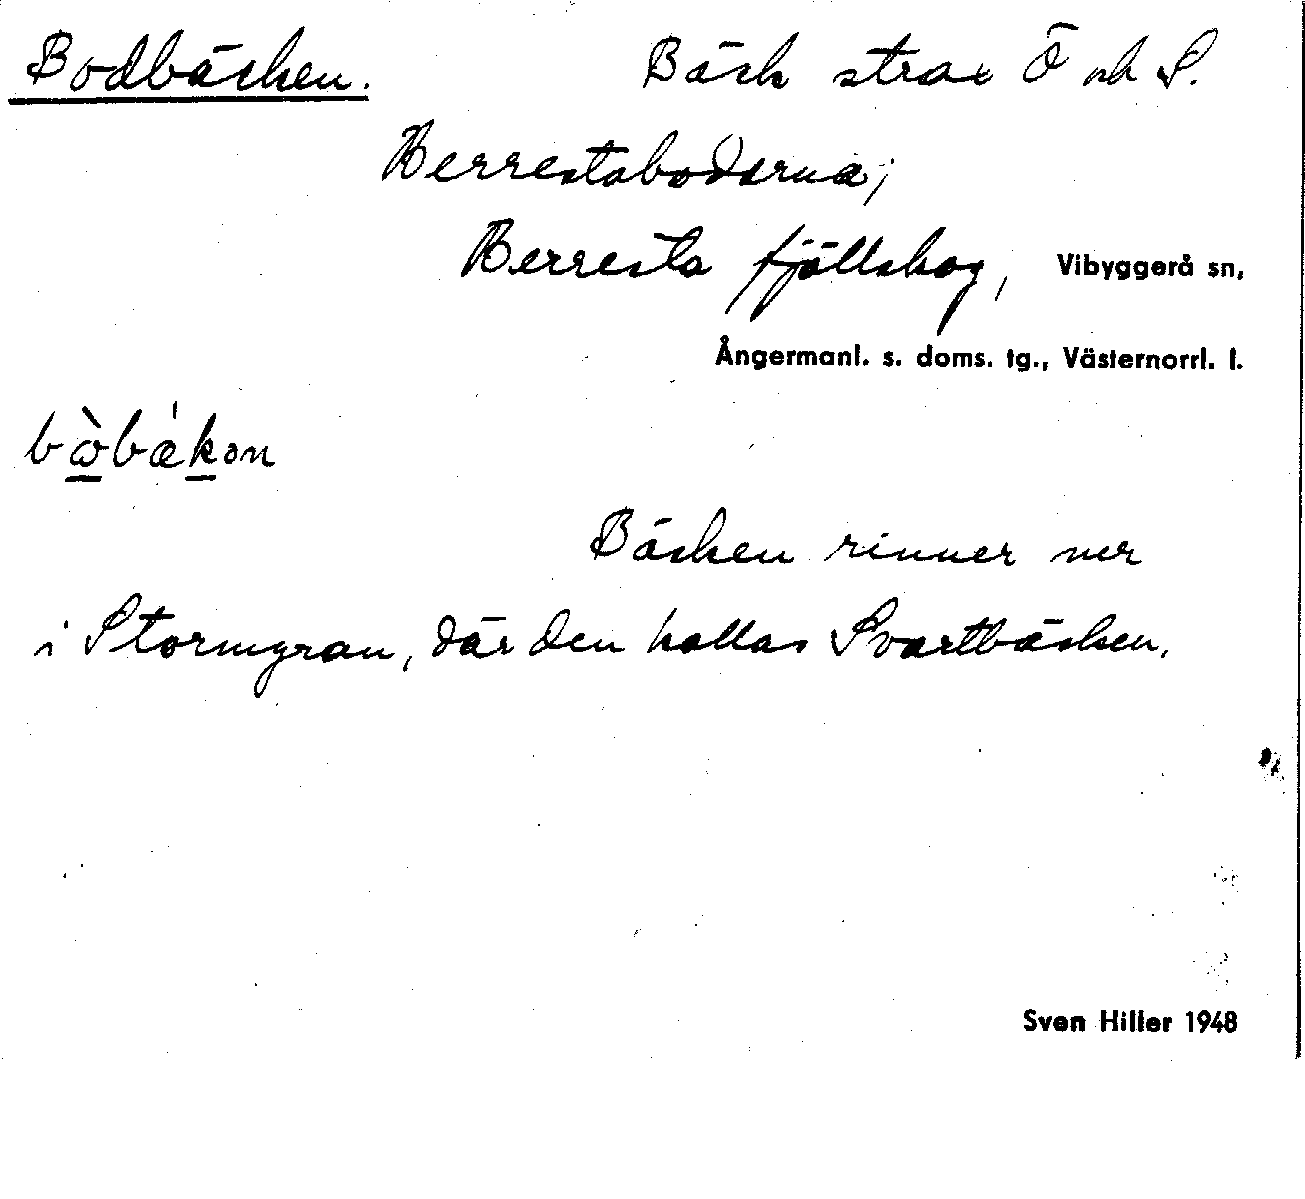 Bodbäcken. Bäck strax Ö och S.
Berrestabodarna;
Berresta fjällskog, Vibyggerå sn,
Ångermanl. s. doms. tg., Västernorrl. l.
Bäcken rinner ner
i Stormyran, där den kallas Svartbäcken.
Sven Hiller 1948